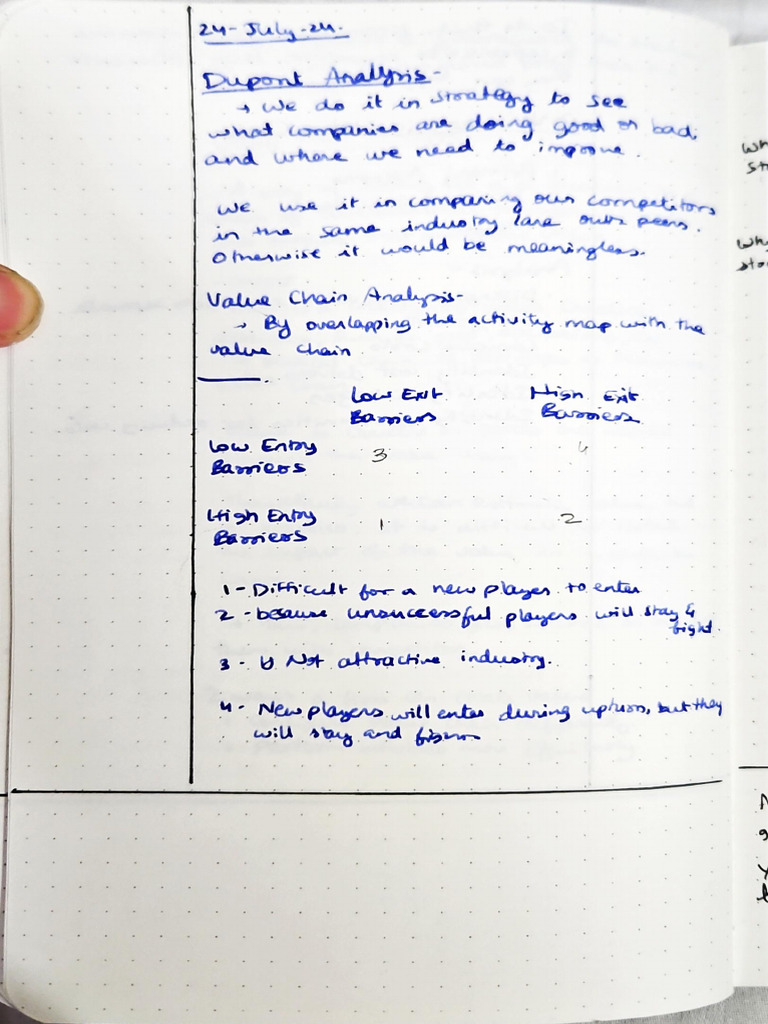 24-July-24.
Dupont Analysis-
→ We do it in strategy to see
what companies are doing good or bad,
and where we need to improve.
We use it in comparing our competitors
in the same industry (are ours peers.
Otherwise it would be meaningless.
Value Chain Analysis-
→ By overlapping the activity map with the
value chain
Low Exit High Exit
Barriers Barriers
Low Entry
Barriers 3 4
High Entry
Barriers 1 2
1 - Difficult for a new player to enter
2 - because unsuccessful players will stay &
fight
3 - Not attractive industry.
4 - New players will enter during upturns, but they
will stay and
Wh
St
Why
sto